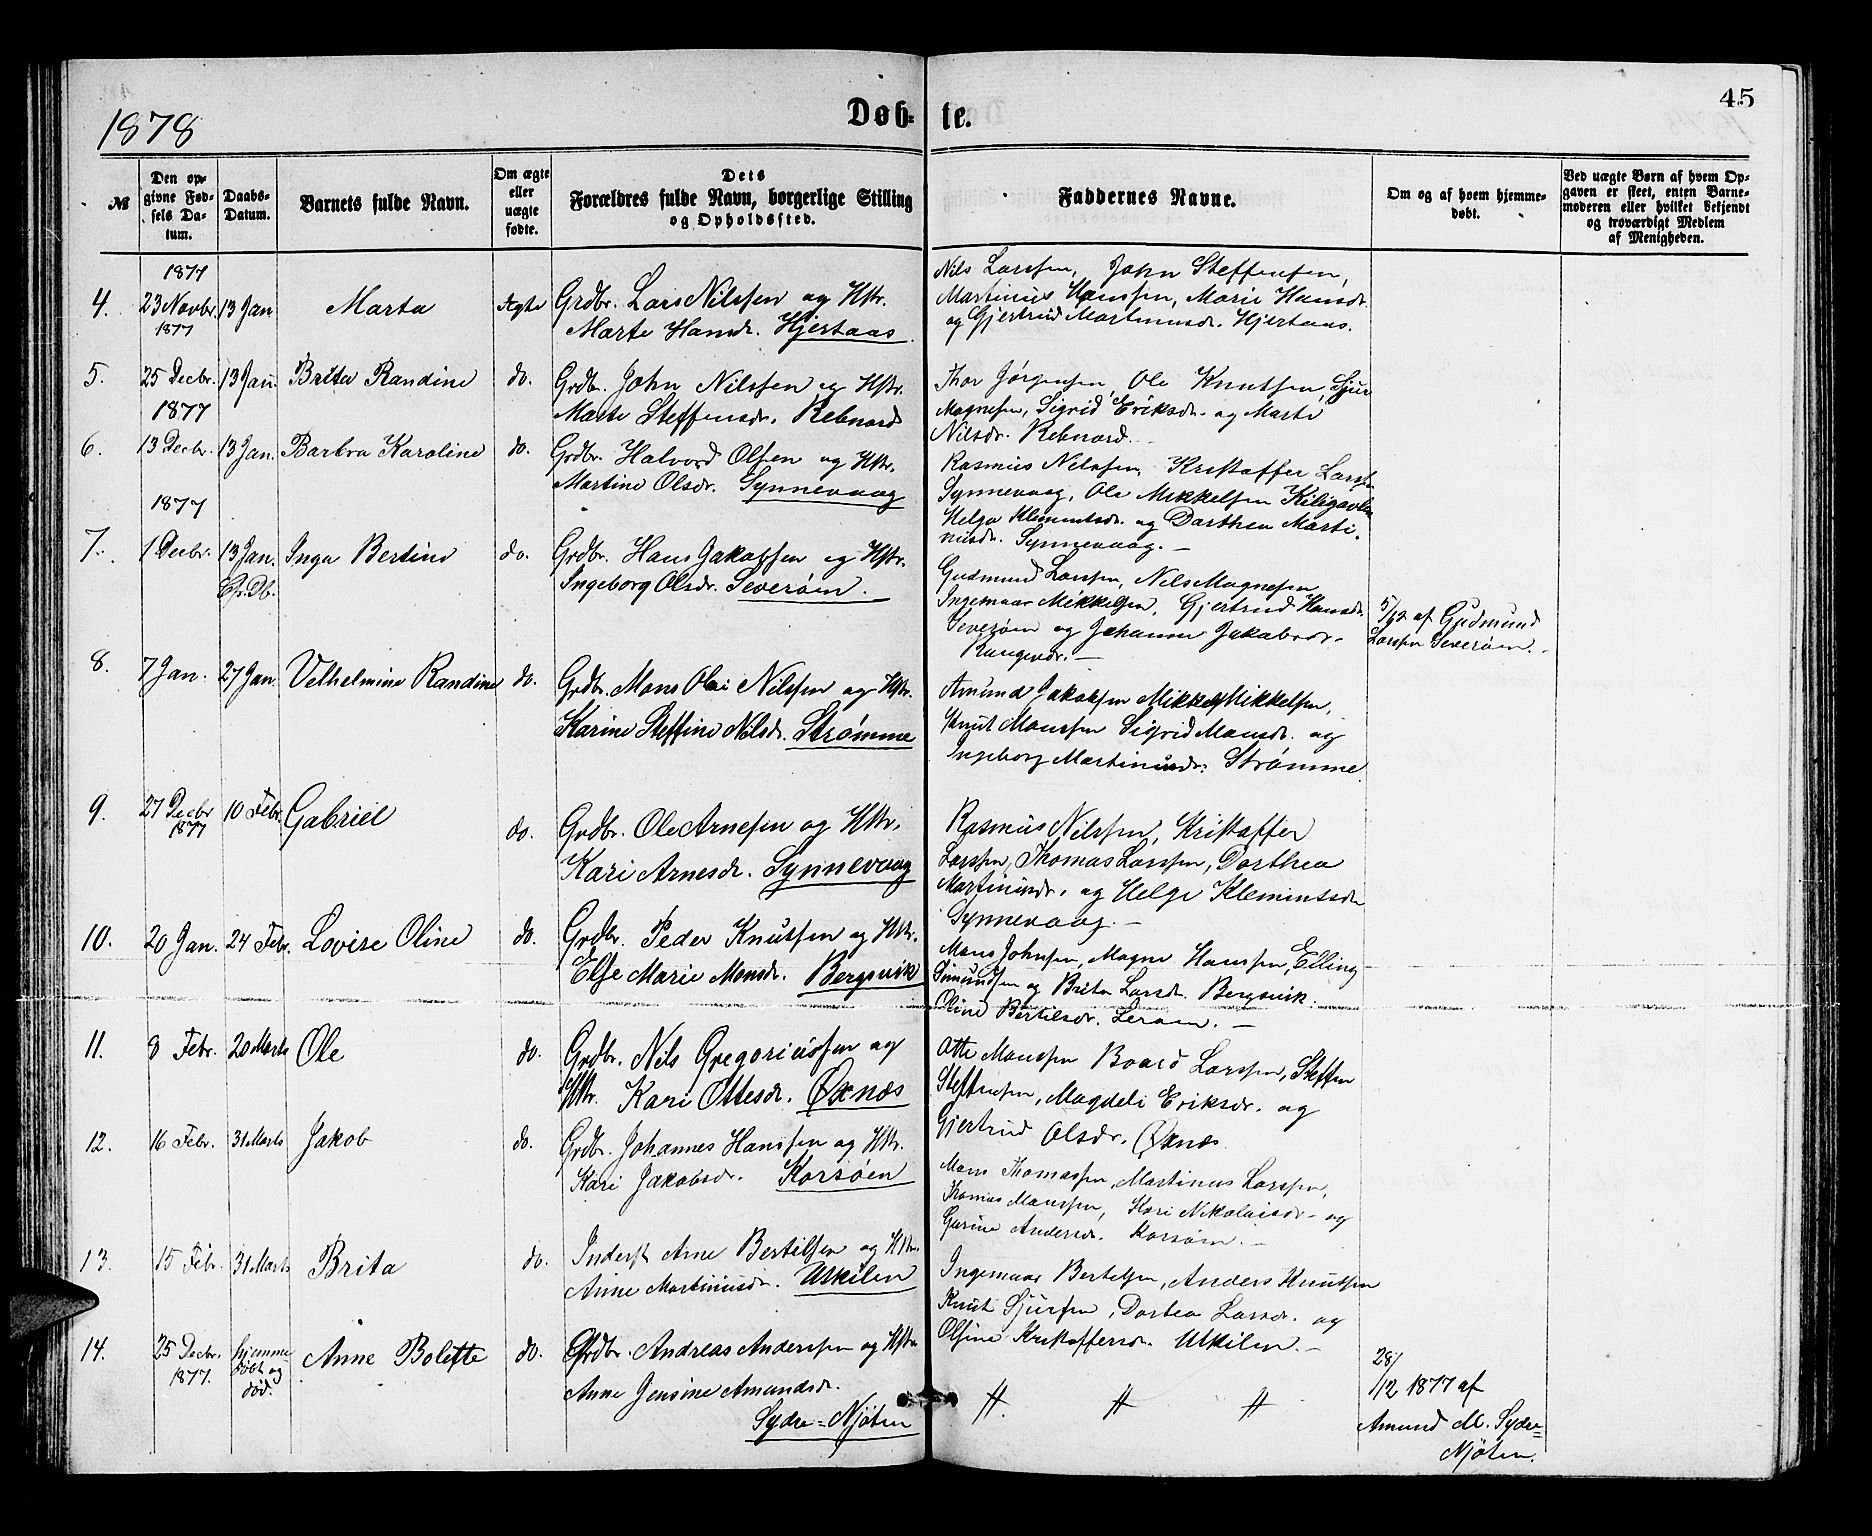 1878
Døb= te.
45
№
Den op-
givne Fød-
sels Da-
tum.
Daabs-
Datum.
Barnets fulde Navn.
Om ægte
eller
uægte
fødte.
Dets
Forældres fulde Navn, borgerlige Stilling
og Opholdssted.
Faddernes Navne.
Om og af hvem hjemme-
døbt.
Ved uægte Børn af hvem Op-
gaven er skeet, enten Barne-
moderen eller hvilket bekjendt
og troværdigt Medlem
af Menigheden.
1877
4. 23 Novbr. 13 Jan Marta Ægte Grdbr. Lars Nilssen og Hstr.
Marte Hansdr. Hjertaas.
Nils Larssen, John Steffensen,
Martinus Hanssen, Marie Hansdr.
og Gjertrud Martinusdr. Hjertaas.
1877
5. 25 Decbr. 13 Jan. Brita Randine do. Grdbr. John Nilssen og Hstr.
Marte Steffensdr. Rebnord
Thor Jørgensen, Ole Knutsen, Sjur
Magnesen, Sigrid Eriksdr. og Marte
Nilsdr. Rebnord.
1877
6. 13 Decbr. 13 Jan. Barbra Karoline do. Grdbr. Halvord Olsen og Hstr.
Martine Olsdr. Synnevaag
Rasmus Nilssen, Kristoffer Larssen
Synnevaag, Ole Mikkelsen Kiligavlen
Helga Klementsdr. og Darthea Marti-
nusdr. Synnevaag. —
1877
7. 1 Decbr. 13 Jan. Inga Bertine do. Grdbr. Hans Jakobsen og Hstr.
Ingeborg Olsdr. Severøen.
Gudmund Larssen, Nils Magnesen
Ingemaar Mikkelsen, Gjertrud Hansdr.
Severøen og Johanne Jakobsdr.
5/12 af Gudmund
Larssen Severøen.
8. 7 Jan. 27 Jan Vilhelmine Randine do. Grdbr. Mons Olai Nilssen og Hstr.
Karine Steffine Nilsdr. Strømme
Amund Jakobsen Mikkel Mikkelsen,
Knut Monssen Sigrid Monsdr. og
Ingeborg Martinusdr. Strømme
9. 27 Decbr 10 Febr. Gabriel do. Grdbr. Ole Arnesen og Hstr.
1877
Kari Arnesdr. Synnevaag
Rasmus Nilssen, Kristoffer
Larssen, Thomas Larssen, Dorthea
Martinusdr. og Helge Klementsdr
Synnevaag. —
10. 20 Jan. 24 Febr. Lovise Oline do. Grdbr. Peder Knutsen og Hstr.
Else Marie Monsdr. Bergsvik
Mons Johnsen, Magne Hanssen, Elling
Simundsen og Brita Larsdr. Bergsvik.
Oline Bertilsdr. Lerøen. —
11. 8 Febr. 20 Marts Ole do. Grdbr. Nils Gregoriussen og
Hstr. Kari Ottesdr. Øxnæs
Otte Monssen Baard Larssen, Steffen
Steffensen, Magdeli Eriksdr. og
Gjertrud Olsdr. Øxnæs.
12. 16 Febr. 31 Marts Jakob do. Grdbr. Johannes Hanssen og Hstr.
Kari Jakobsdr. Korsøen
Mons Thomassen, Martinus Larssen,
Thomas Monssen, Kari Nikolaisdr. og
Gurine Andersdr. Korsøen. —
13. 15 Febr. 31 Marts Brita do. Inderst Arne Bertilsen og Hstr.
Anne Martinusdr. Utkilen
Ingemaar Bertelsen, Anders Knutsen
Knut Sjursen, Dortea Larsdr. og
Olsine Kristoffersdr. Utkilen. —
14. 25 Decbr. hjemme Anne Bolette do. Grdbr. Andreas Anderssen og Hstr.
1877. døbt og
død.
Anne Jensine Amundsdr.
Sydre=Njøten
〃 〃 〃
28/
/12 1877 af
Amund M. Sydre=
Njøten.